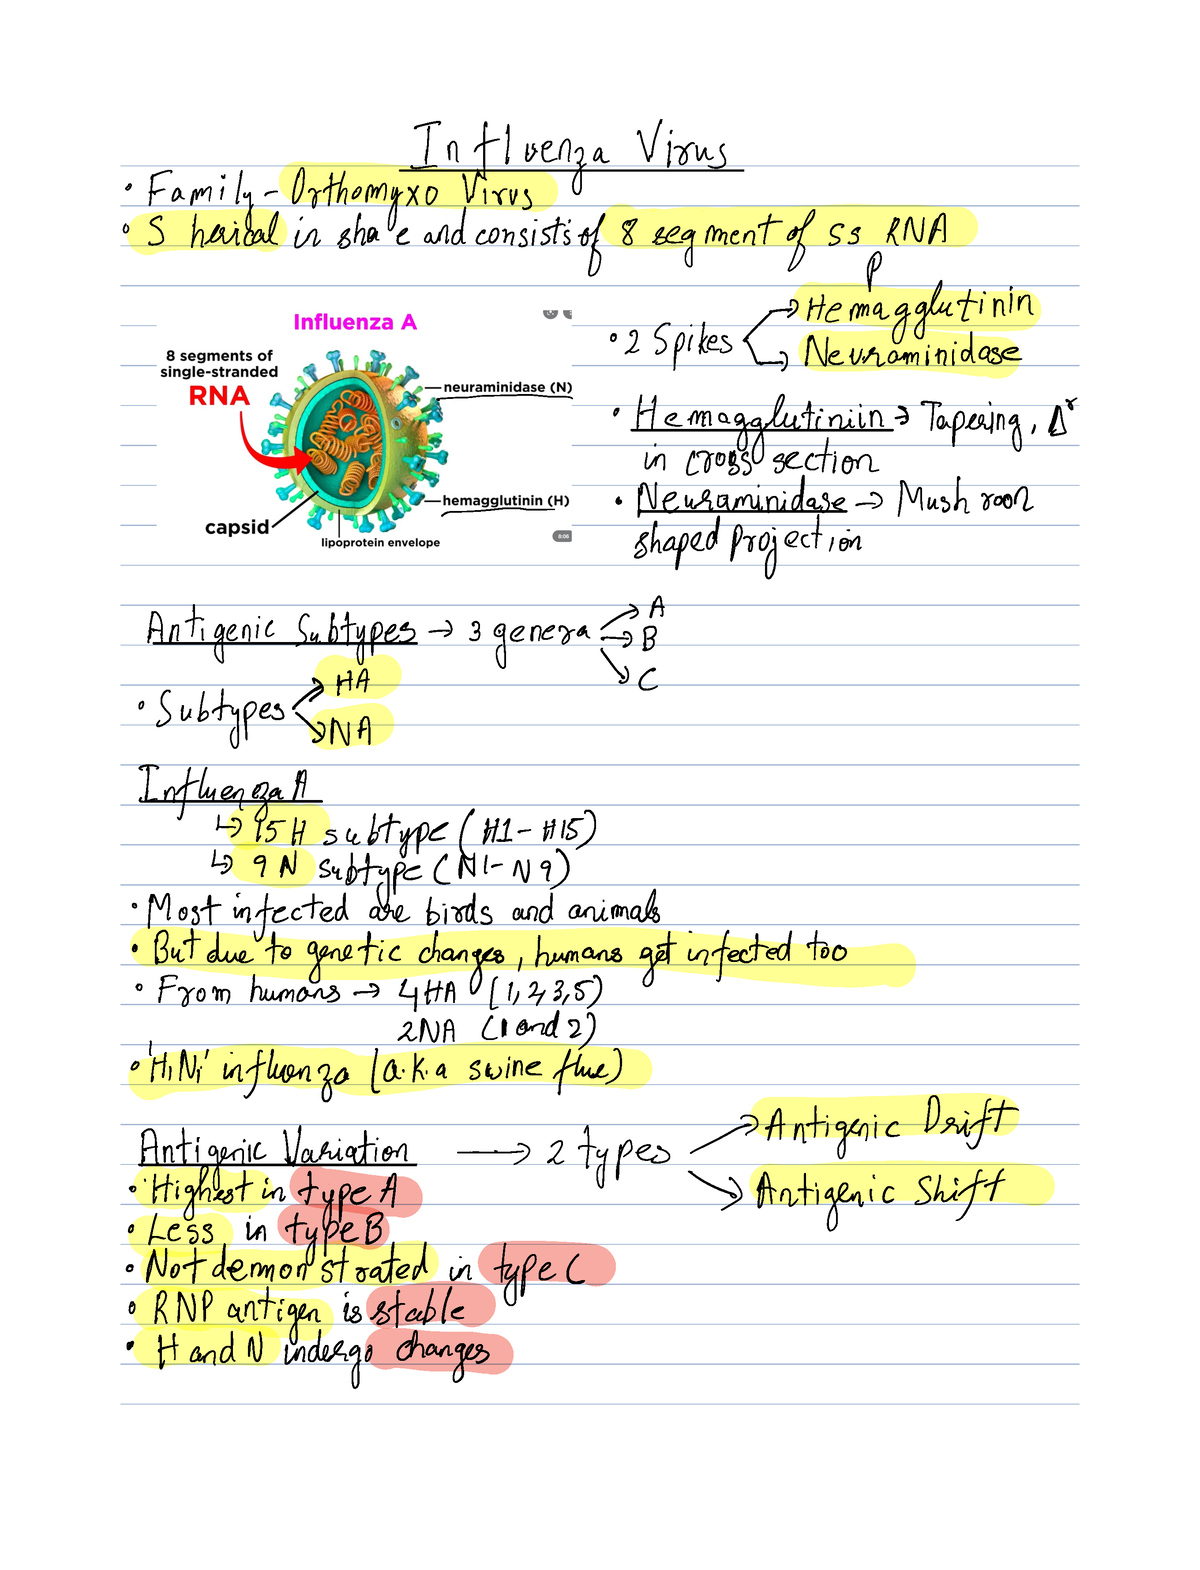 Influenza Virus
• Family - Orthomyxo Virus
• S herical in sha e and consists of 8 segment of ss RNA
p
Influenza A
8 segments of
single-stranded
RNA
neuraminidase (N)
hemagglutinin (H)
capsid
lipoprotein envelope
0:06
• 2 Spikes → Hemagglutinin
→ Neuraminidase
• Hemagglutiniin → Tapering, Δr
in cross section
• Neuraminidase → Mush room
shaped projection
Antigenic Subtypes → 3 genera → A
→ B
→ C
• Subtypes → HA
→ NA
Influenza A
↳ 15 H subtype (H1 - H15)
↳ 9 N subtype (N1 - N9)
• Most infected are birds and animals
• But due to genetic changes, humans get infected too
• From humans → 4HA (1,2,3,5)
2NA (1 and 2)
• 'H1N1' influenza (a.k.a swine flue)
Antigenic Variation → 2 types → Antigenic Drift
→ Antigenic Shift
• Highest in type A
• Less in type B
• Not demonstrated in type C
• RNP antigen is stable
• H and N undergo changes